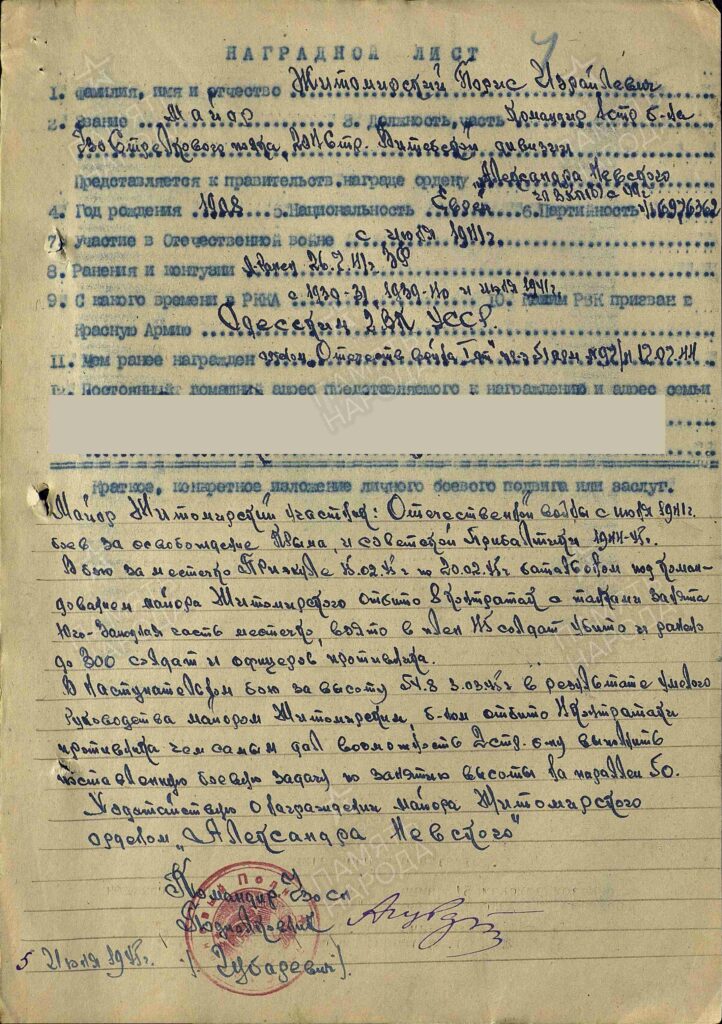 НАГРАДНОЙ ЛИСТ
1. Фамилия, имя и отчество Житомирский Борис Израйлевич
2. Звание Майор 3. Должность, часть Командир 1 стр б-на
Стрелкового полка, Стр. Витебской дивизии
Представляется к правительств. награде ордену "Александра Невского"
4. Год рождения 5. Национальность Еврей 6. Партийность
7. Участие в Отечественной войне с июля 1941г.
8. Ранения и контузии 26.7.41г. ЗФ
9. С какого времени в РККА с 1939-40 и июля 1941г. 10. Каким РВК призван в
Красную Армию Одесским УССР.
11. Чем ранее награжден орден. "Отечеств войны 12.02.44
12. Постоянный домашний адрес представляемого к награждению и адрес семьи
Краткое, конкретное изложение личного боевого подвига или заслуг.
Майор Житомирский участник: Отечественной войны с июля 1941г.
боев за освобождение Крыма, и советской Прибалтики 1944-45г.
В бою за местечко Приекуле 15.02.45г по 20.02.45г батальоном под коман-
дованием майора Житомирского отбито 8 контратак с танками занята
Юго-Западная часть местечка, взято в плен 45 солдат убито и ранено
до 300 солдат и офицеров противника.
В наступательном бою за высоту 54.8 3.03.45г в результате умелого
руководства майором Житомирским, б-ном отбито контратаки
противника чем самым дал возможность 2 стр. б-ну выполнить
поставленную боевую задачу по занятию высоты
Ходатайствую о награждении майора Житомирского
орденом "Александра Невского"
Командир
Подполковник
5 июля 1945г. (Губаревич).
ПАМЯТЬ НАРОДА